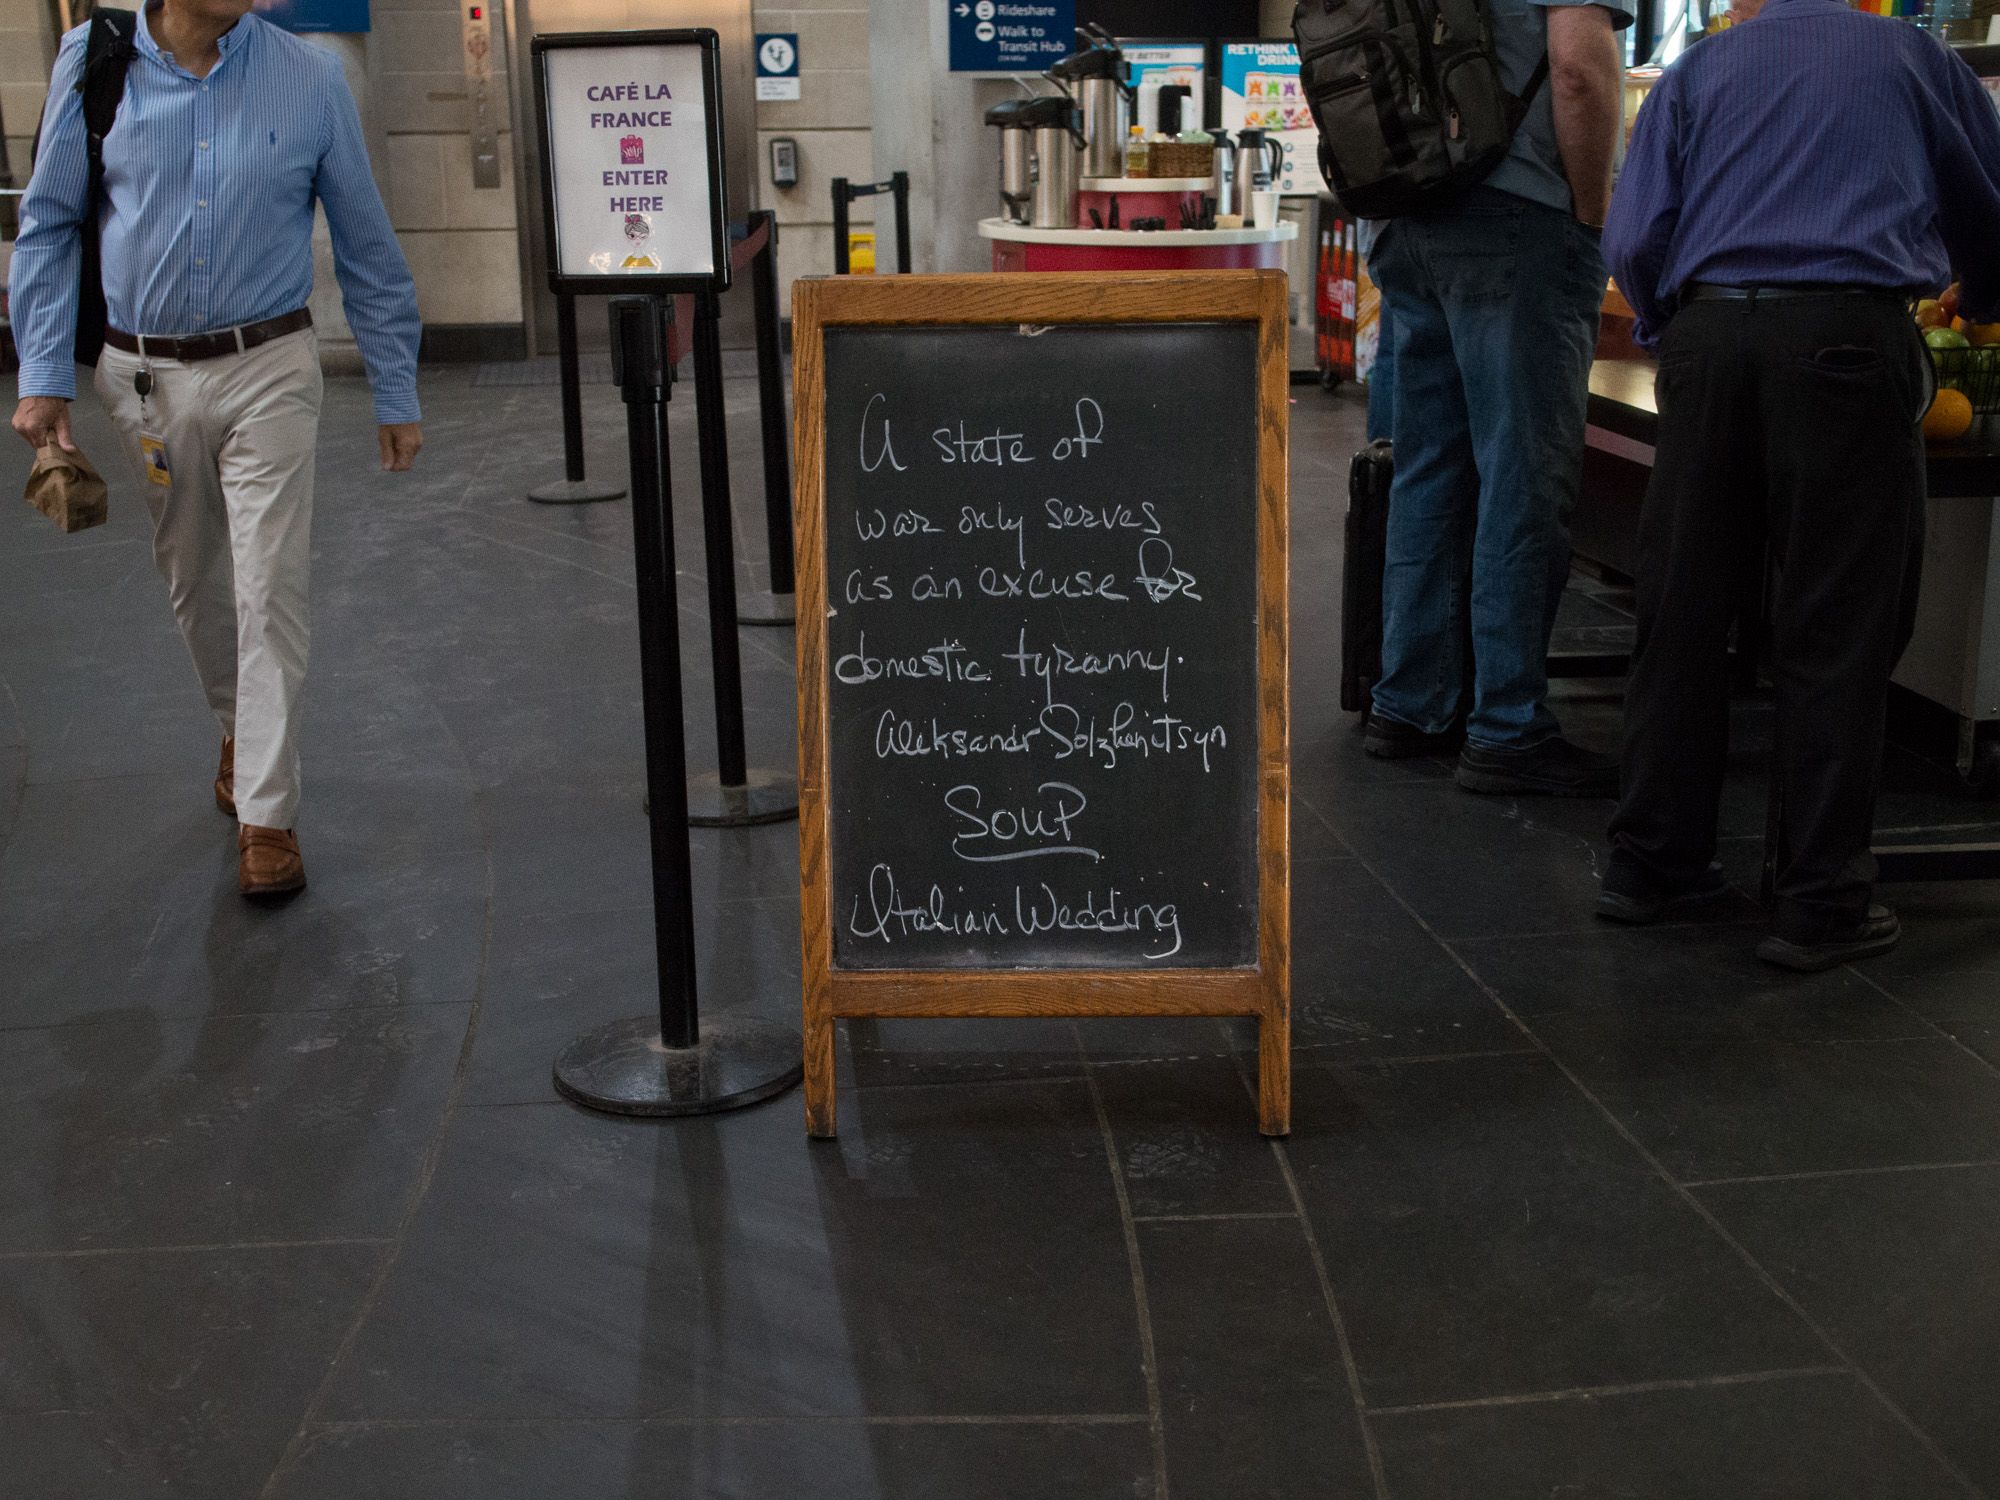 Rideshare
Walk to
Transit Hub
RETHINK
DRINK
CAFÉ LA
FRANCE
ENTER
HERE
A state of
war only serves
as an excuse for
domestic tyranny.
Aleksandr Solzhenitsyn
Soup
Italian Wedding